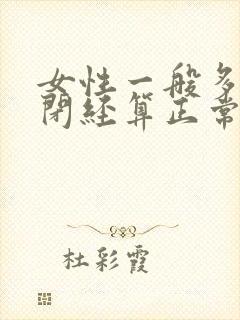 女性一般多
閉經算正常
杜彩霞